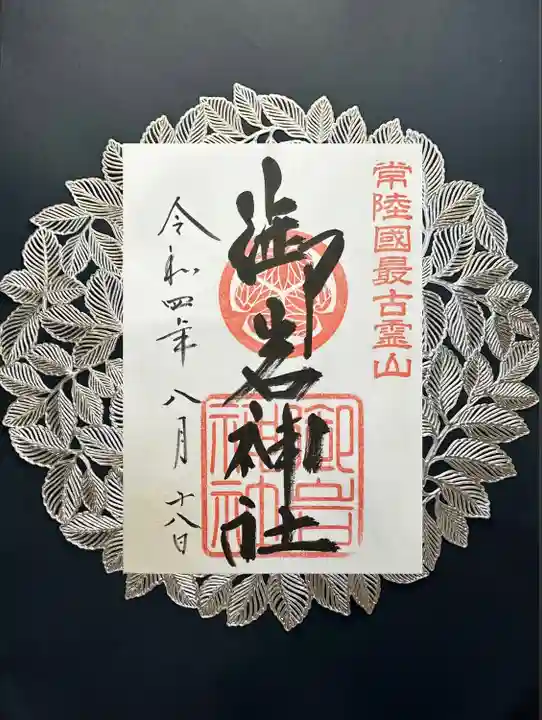 常陸國最古霊山
御岩神社
令和四年八月十八日
御岩
神社